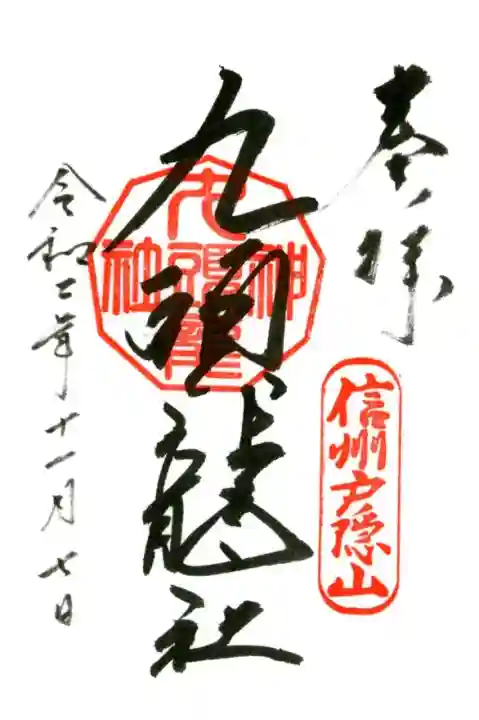 奉拝
信州戸隠山
九頭龍社
九頭龍
神社
令和二年十一月七日